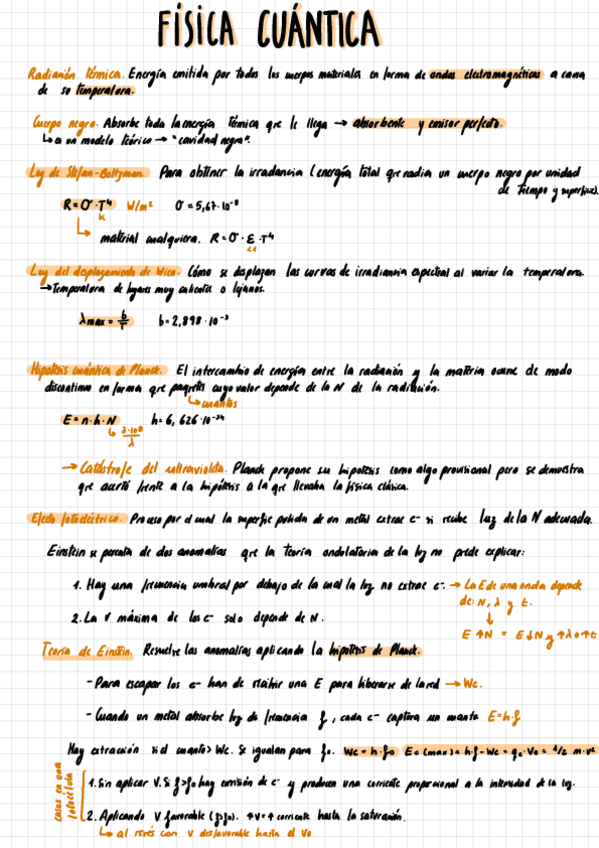 FÍSICA CUÁNTICA
Radiación térmica. Energía emitida por todos los cuerpos materiales en forma de ondas electromagnéticas a causa
de su temperatura.
Cuerpo negro. Absorbe toda la energía térmica que le llega → absorbente y emisor perfecto.
↳ es un modelo teórico → "cavidad negra".
Ley de Stefan-Boltzman. Para obtener la irradiancia (energía total que radia un cuerpo negro por unidad
de tiempo y superficie).
R = σ · T⁴ W/m² σ = 5,67·10⁻⁸
K
↳ material cualquiera. R = σ · ε · T⁴
<1
Ley del desplazamiento de Wien. Cómo se desplazan las curvas de irradiancia espectral al variar la temperatura.
→ Temperatura de lugares muy calientes o lejanos.
λmax = b/T b = 2,898·10⁻³
Hipótesis cuántica de Planck. El intercambio de energía entre la radiación y la materia ocurre de modo
discontinuo en forma que paquetes cuyo valor depende de la N de la radiación.
↳ cuantos
E = n·h·N h = 6,626·10⁻³⁴
↳ 3·10⁸/λ
→ Catástrofe del ultravioleta. Planck propone su hipótesis como algo provisional pero se demuestra
que acertó frente a la hipótesis a la que llevaba la física clásica.
Efecto fotoeléctrico. Proceso por el cual la superficie pulida de un metal extrae e- si recibe luz de la N adecuada.
Einstein se percata de dos anomalías que la teoría ondulatoria de la luz no puede explicar:
1. Hay una frecuencia umbral por debajo de la cual la luz no extrae e-. → La E de una onda depende
de: N, λ y t.
↓
2. La V máxima de los e- solo depende de N.
E ↑N = E↓N y ↑λ o ↑t
Teoría de Einstein. Resuelve las anomalías aplicando la hipótesis de Planck.
- Para escapar los e- han de recibir una E para liberarse de la red → Wc.
- Cuando un metal absorbe luz de frecuencia f, cada e- captura un cuanto E=h·f
Hay extracción si el cuanto > Wc. Se igualan para f₀. Wc = h·f₀ E₀(max) = h·f - Wc = q·V₀ = 1/2 m·v²
casos en una fotocélula
1. Sin aplicar V. Si f>f₀ hay emisión de e- y producen una corriente proporcional a la intensidad de la luz.
2. Aplicando V favorable (f>f₀). ↑V = ↑ corriente hasta la saturación.
↳ al revés con V desfavorable hasta el V₀